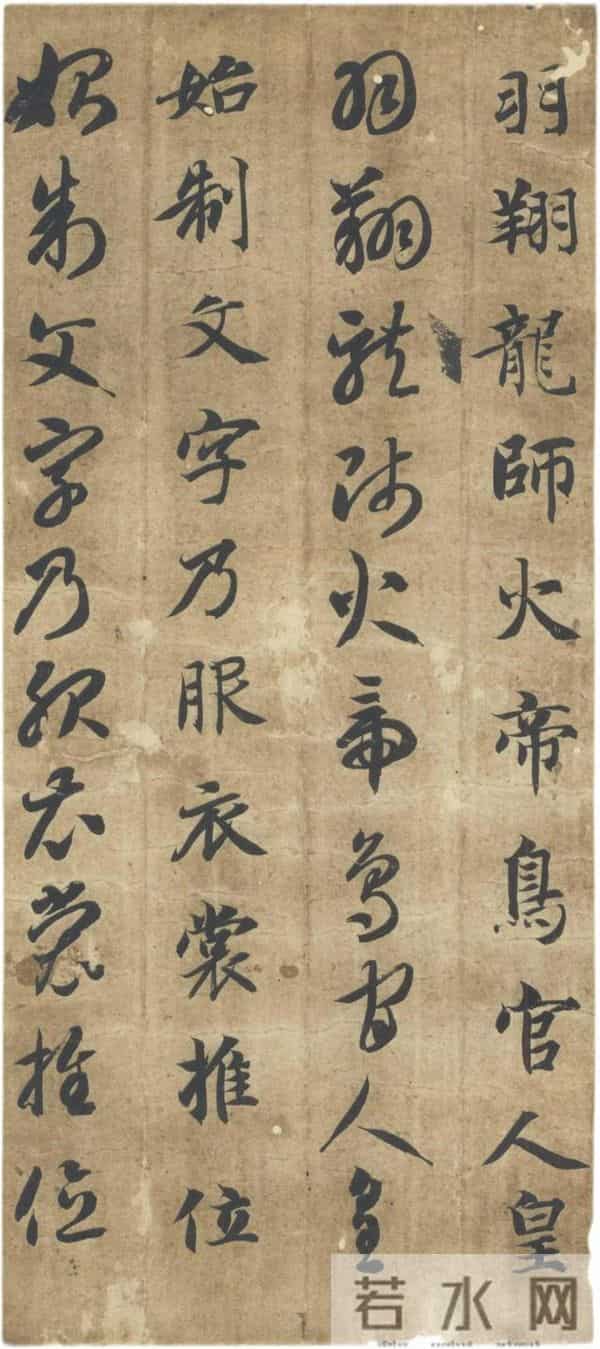 羽翔龍師火帝鳥官人皇
羽翔龍師火帝鳥官人皇
始制文字乃服衣裳推位
始制文字乃服衣裳推位
若水网